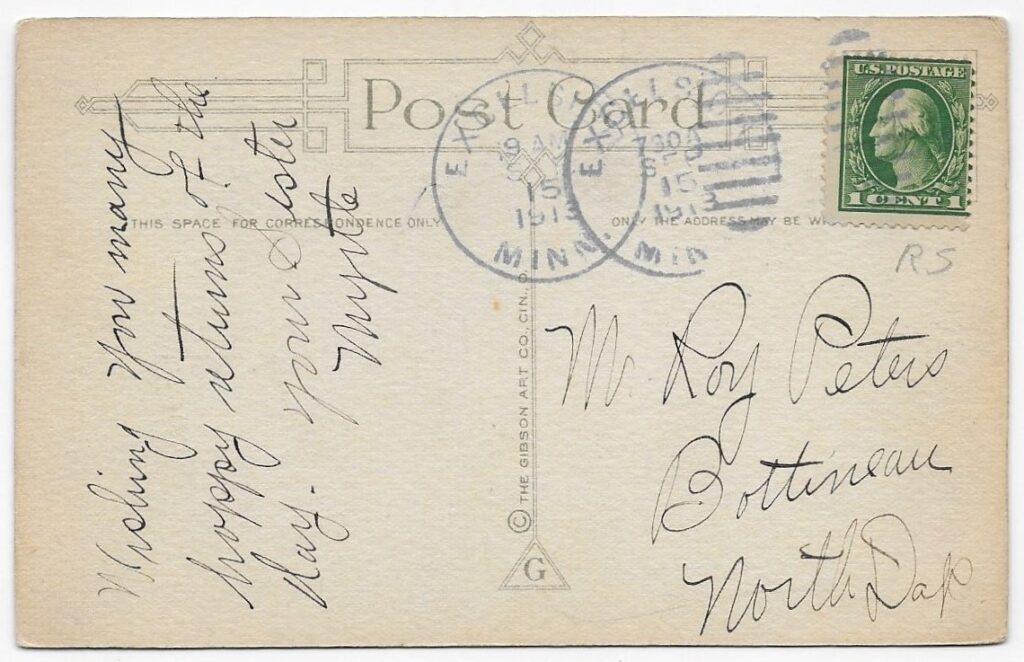 Post Card
THIS SPACE FOR CORRESPONDENCE ONLY
ONLY THE ADDRESS MAY BE
U.S. POSTAGE
1 CENT 1
9 AM
15
1913
MINN.
730A
SEP
15
1913
MIN
RS
Wishing you many
happy returns of the
day. your Sister
Myrte
Mr. Roy Peters
Bottineau
North Dak
© THE GIBSON ART CO., CIN., O.
G